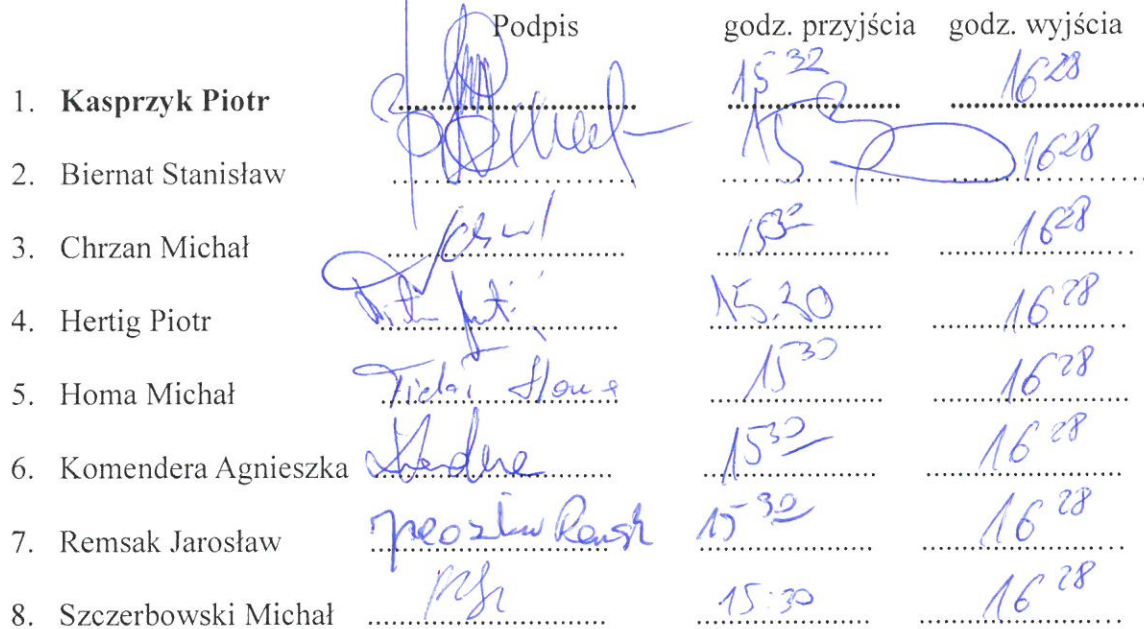 Podpis godz. przyjścia godz. wyjścia
1. Kasprzyk Piotr 15 32 16 28
2. Biernat Stanisław 16 28
3. Chrzan Michał 15 30 16 28
4. Hertig Piotr 15.30 16 28
5. Homa Michał 15 30 16 28
6. Komendera Agnieszka 15 30 16 28
7. Remsak Jarosław 15 30 16 28
8. Szczerbowski Michał 15:30 16 28